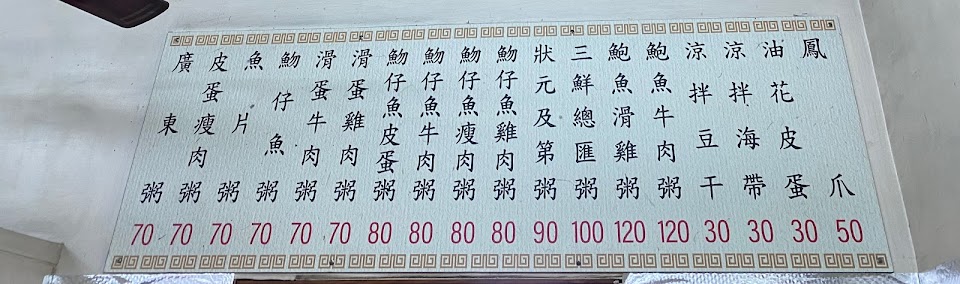 廣東粥 70
皮蛋瘦肉粥 70
魚片粥 70
魩仔魚粥 70
滑蛋牛肉粥 70
滑蛋雞肉粥 70
魩仔魚皮蛋粥 80
魩仔魚牛肉粥 80
魩仔魚瘦肉粥 80
魩仔魚雞肉粥 80
狀元及第粥 90
三鮮總匯粥 100
鮑魚滑雞粥 120
鮑魚牛肉粥 120
涼拌豆干 30
涼拌海帶 30
油花皮蛋 30
鳳爪 50